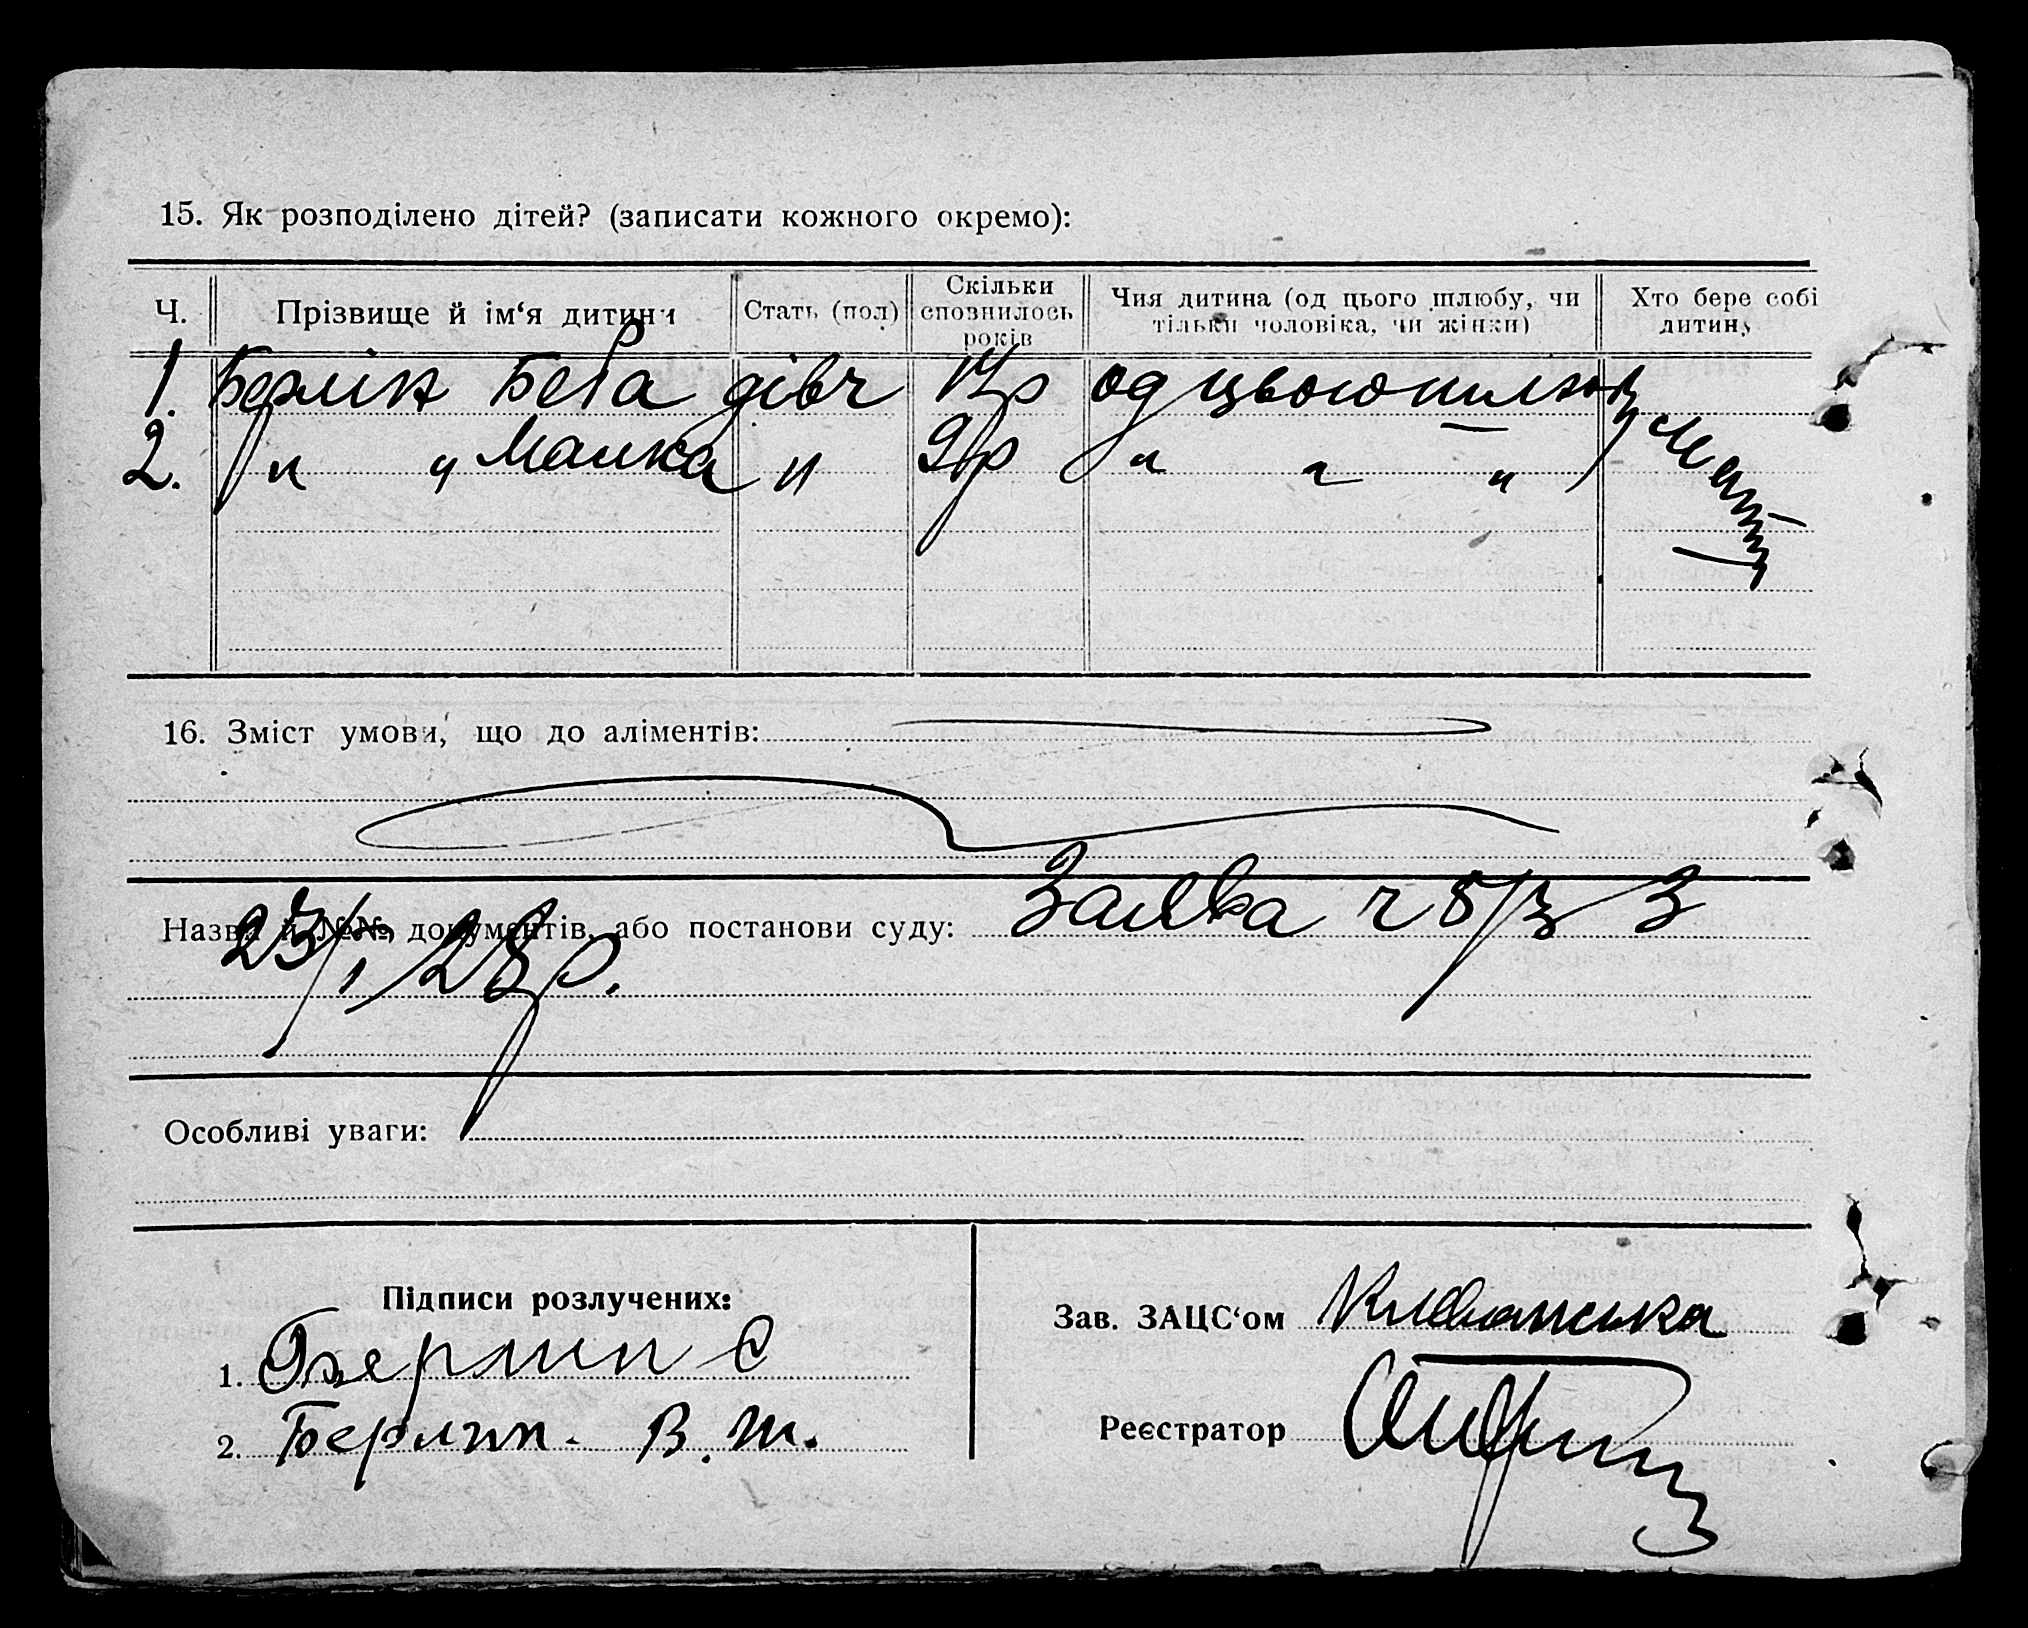 15. Як розподілено дітей? (записати кожного окремо):
Ч. Прізвище й ім‘я дитини Стать (пол) Скільки сповнилось років Чия дитина (од цього шлюбу, чи тільки чоловіка, чи жінки) Хто бере собі дитину
1. Берлін Беба дівч од цього шлюбу мати
2. „ „ Малка „ 9 р „ „ „
16. Зміст умови, що до аліментів:
Назва й №№ документів, або постанови суду: Заява ч 8/3 з
23/1 28 р.
Особливі уваги:
Підписи розлучених:
1. Берлин С
2. Берлин. В. М.
Зав. ЗАЦС‘ом
Реєстратор